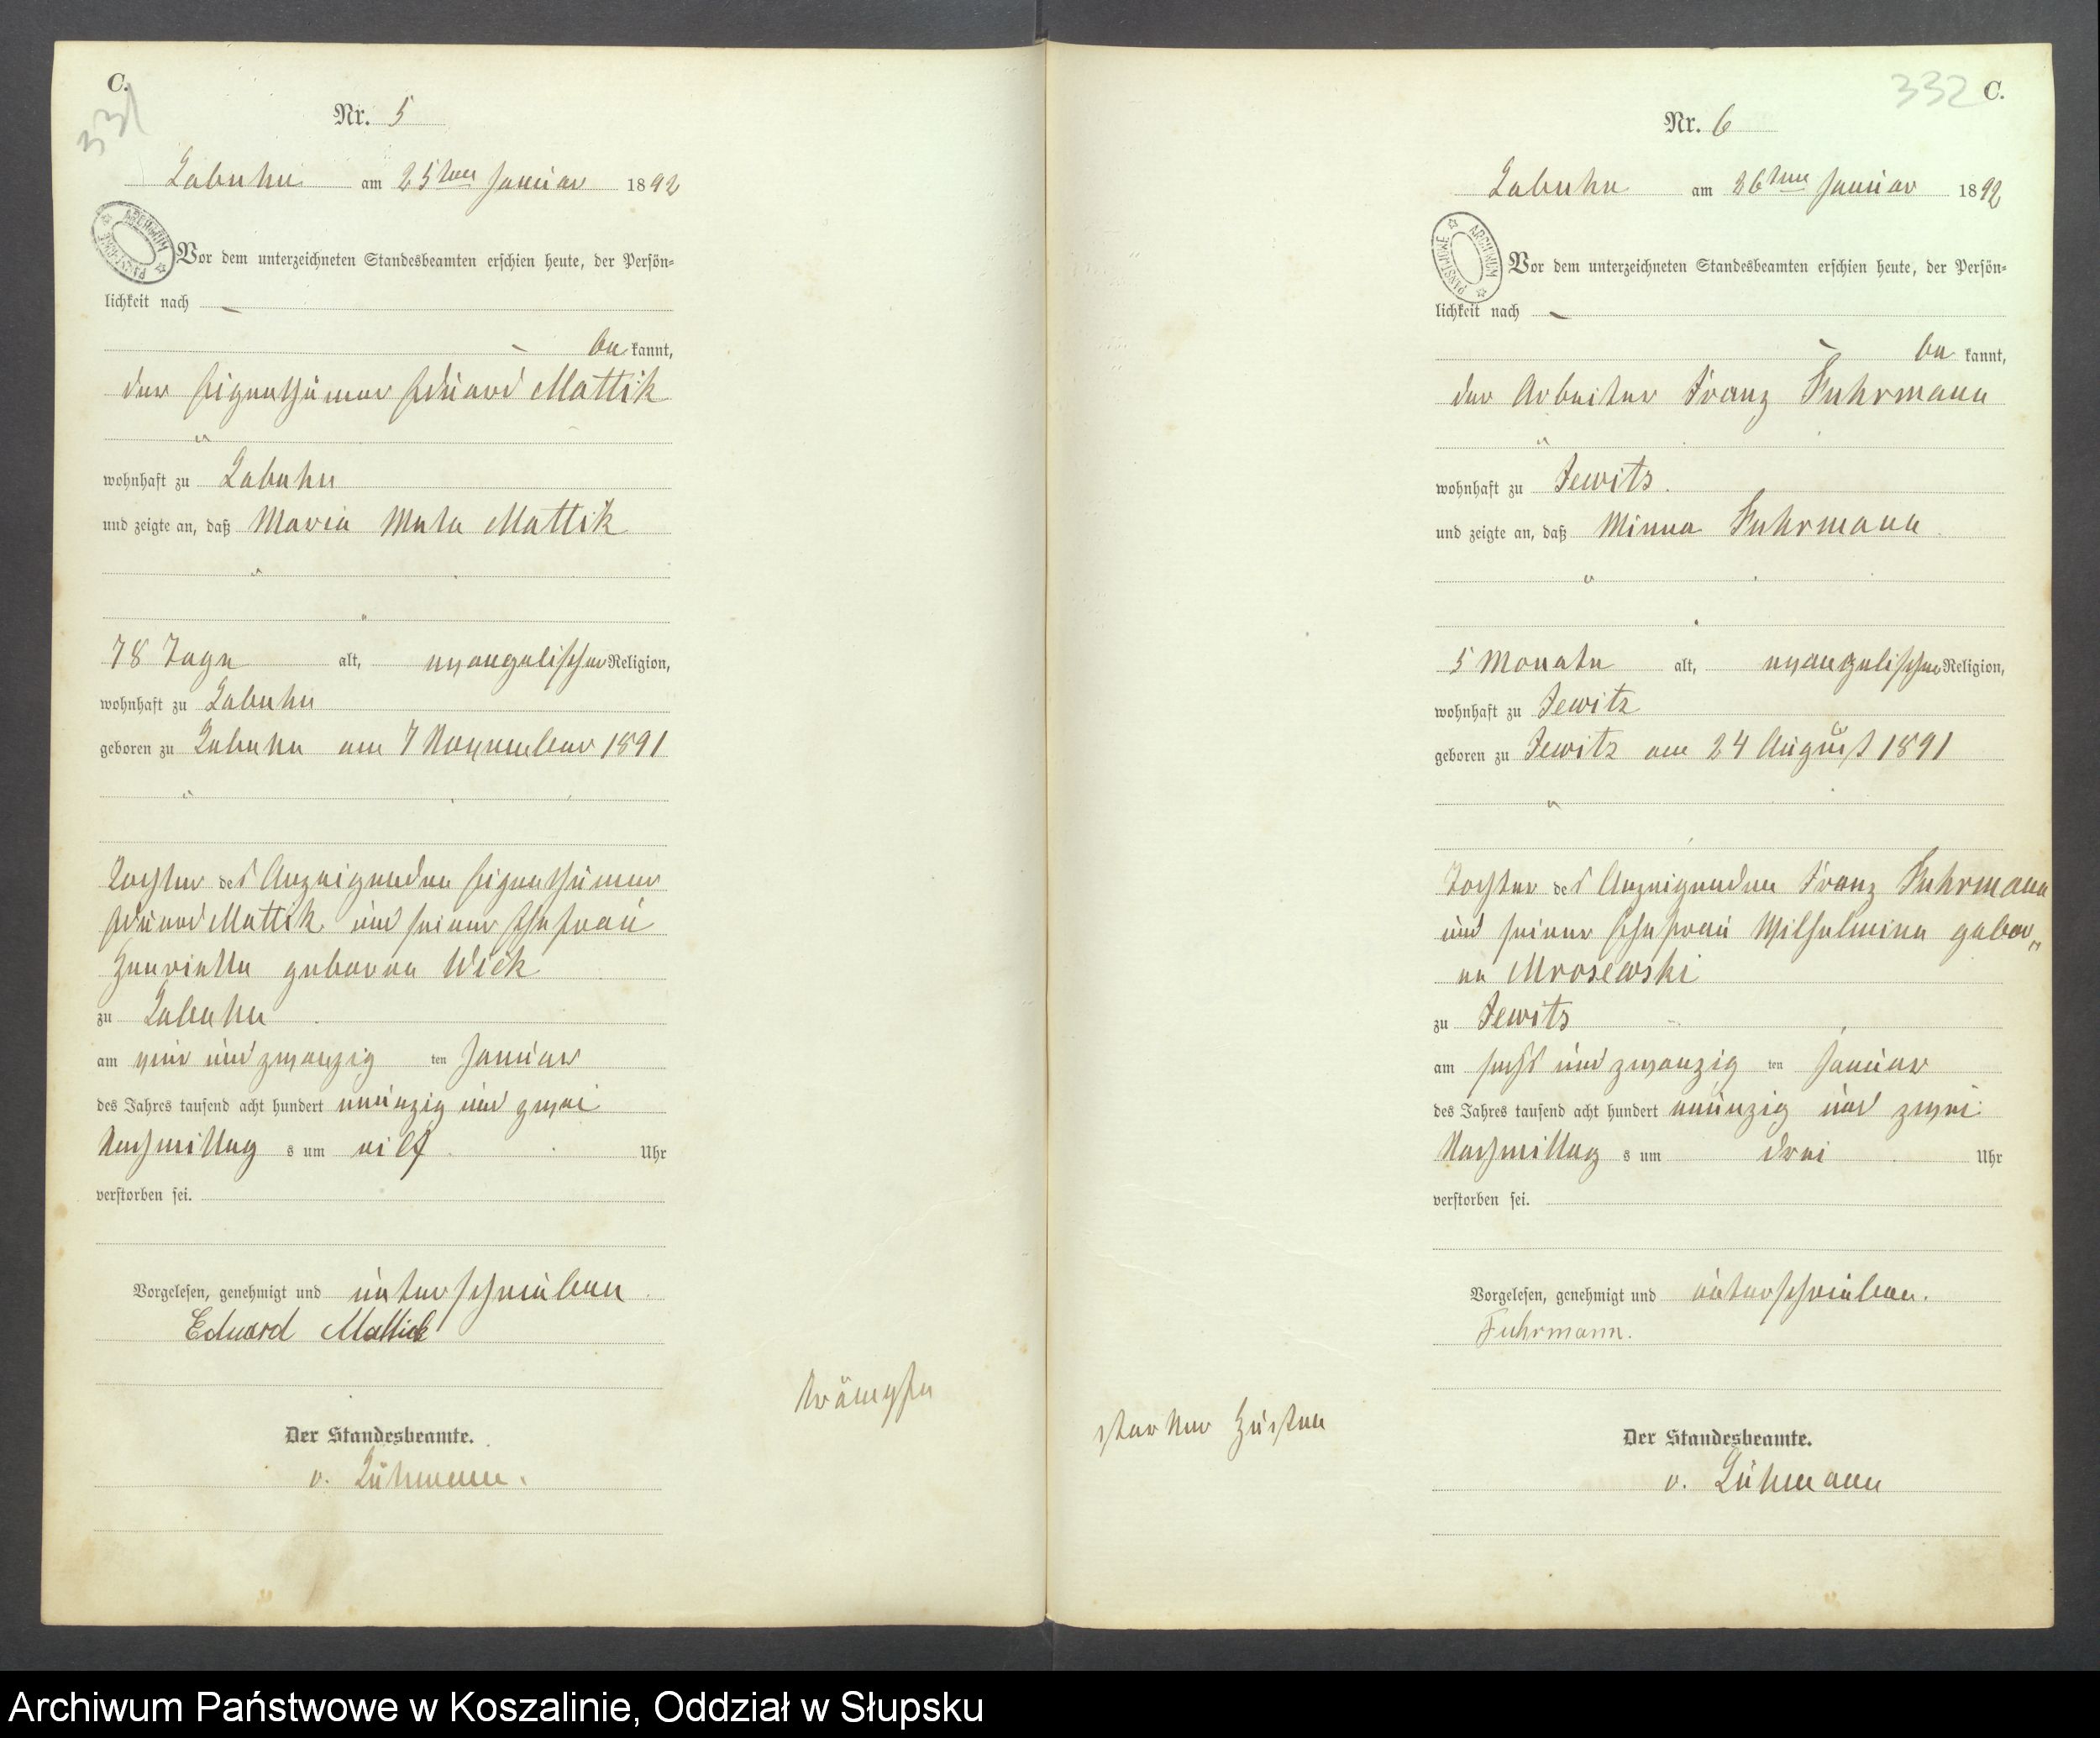 C.
331
Nr. 5
Labuhn am 25ten Januar 1892
Vor dem unterzeichneten Standesbeamten erschien heute, der Persön-
lichkeit nach —
— be kannt,
der Eigenthümer Eduard Mattik
wohnhaft zu Labuhn
und zeigte an, daß Maria Meta Mattik
78 Tage alt, evangelischer Religion,
wohnhaft zu Labuhn
geboren zu Labuhn am 7 November 1891
Tochter des Anzeigenden Eigenthümer
Eduard Mattik und seiner Ehefrau
Henriette geborne Wick
zu Labuhn
am vier und zwanzig ten Januar
des Jahres tausend acht hundert neunzig und zwei
Nachmittag s um eilf Uhr
verstorben sei.
Vorgelesen, genehmigt und unterschrieben
Eduard Mattick
Krämpfe
Der Standesbeamte.
v. Lühmann.
332 C.
Nr. 6
Labuhn am 26ten Januar 1892
ARCHIWUM PAŃSTWOWE
Vor dem unterzeichneten Standesbeamten erschien heute, der Persön-
lichkeit nach —
— be kannt,
der Arbeiter Franz Fuhrmann
wohnhaft zu Jewitz.
und zeigte an, daß Minna Fuhrmann
5 Monate alt, evangelischer Religion,
wohnhaft zu Jewitz
geboren zu Jewitz am 24 August 1891
Tochter des Anzeigenden Franz Fuhrmann
und seiner Ehefrau Wilhelmine gebor„
ne Mrosewski
zu Jewitz
am sechs und zwanzig ten Januar
des Jahres tausend acht hundert neunzig und zwei
Nachmittag s um drei Uhr
verstorben sei.
Vorgelesen, genehmigt und unterschrieben.
Fuhrmann.
starker Husten
Der Standesbeamte.
v. Lühmann
Archiwum Państwowe w Koszalinie, Oddział w Słupsku